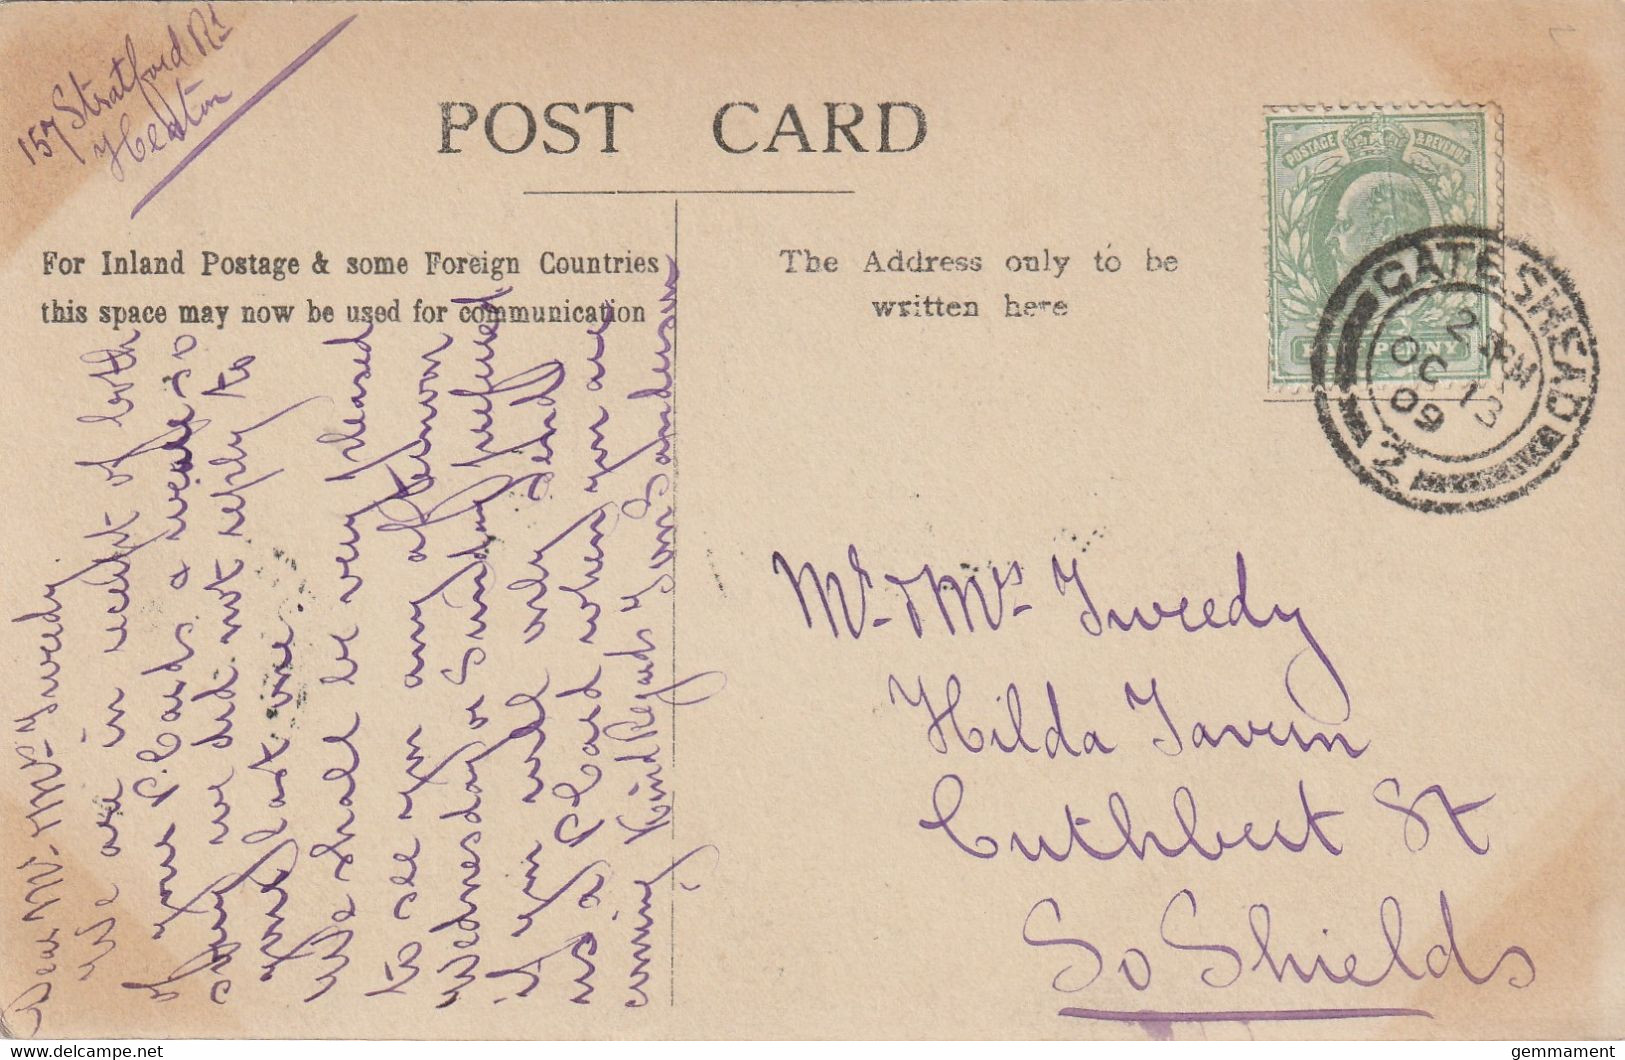 157 Stratford Rd
Heaton
POST CARD
For Inland Postage & some Foreign Countries
this space may now be used for communication
The Address only to be
written here
POSTAGE & REVENUE
HALFPENNY
GATESHEAD
2 PM
OC 13
09
2
Dear Mr & Mrs Tweedy
We are in receipt of both
of your P. Cards & were so
sorry we did not reply to
your last one.
We shall be very pleased
to see you any afternoon
Wednesday or Sunday prefered
if you will only send
us a P Card when you are
coming Kind Regards Yours Sanderson
Mr & Mrs Tweedy
Hilda Tavern
Cuthbert St
So Shields
www.delcampe.net
gemmament